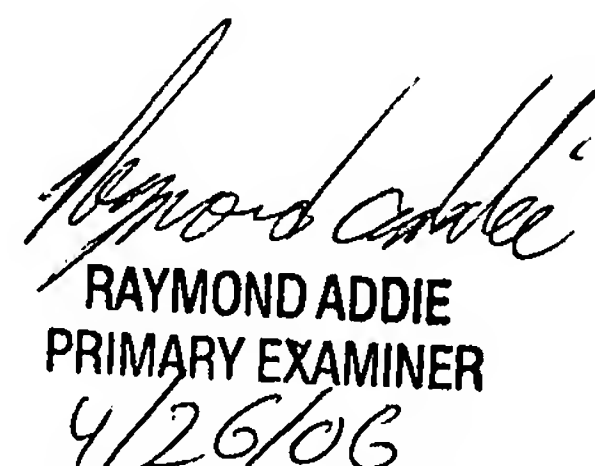 Raymond Addie
RAYMOND ADDIE
PRIMARY EXAMINER
4/26/06